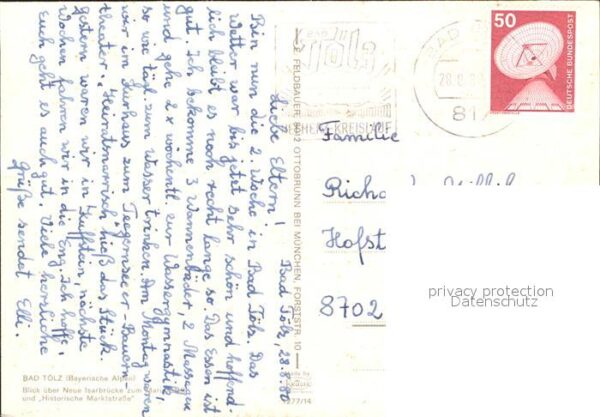 Bad Tölz, 28.8.80
Liebe Eltern!
Bin nun die 2. Woche in Bad Tölz. Das
Wetter war bis jetzt sehr schön und hoffend-
lich bleibt es noch recht lange so. Das Essen ist
gut. Ich bekomme 3 Wannenbäder, 2 Massage
und gehe 2 x wöchentl. zur Wassergymnastik,
so wie tägl. zum Wasser trinken. Am Montag waren
wir im Kurhaus zum Tegernseer-Bauern
theater. Heiratmarrisch hieß das Stück.
Gestern waren wir in Lufftain, nächste
Wochen fahren wir in die Eng. Ich hoffe,
Euch geht es auch gut. Viele herzliche
Grüße sendet Elli.
BAD TÖLZ (Bayerische Alpen)
Blick über Neue Isarbrücke zum
und „Historische Marktstraße"
FELDBAUER, 8012 OTTOBRUNN BEI MÜNCHEN, FORSTSTR. 10
277/14
Bad Tölz
KREISLAUF
BAD
28.8.
81
50
DEUTSCHE BUNDESPOST
Familie
Hofst
8702
privacy protection
Datenschutz